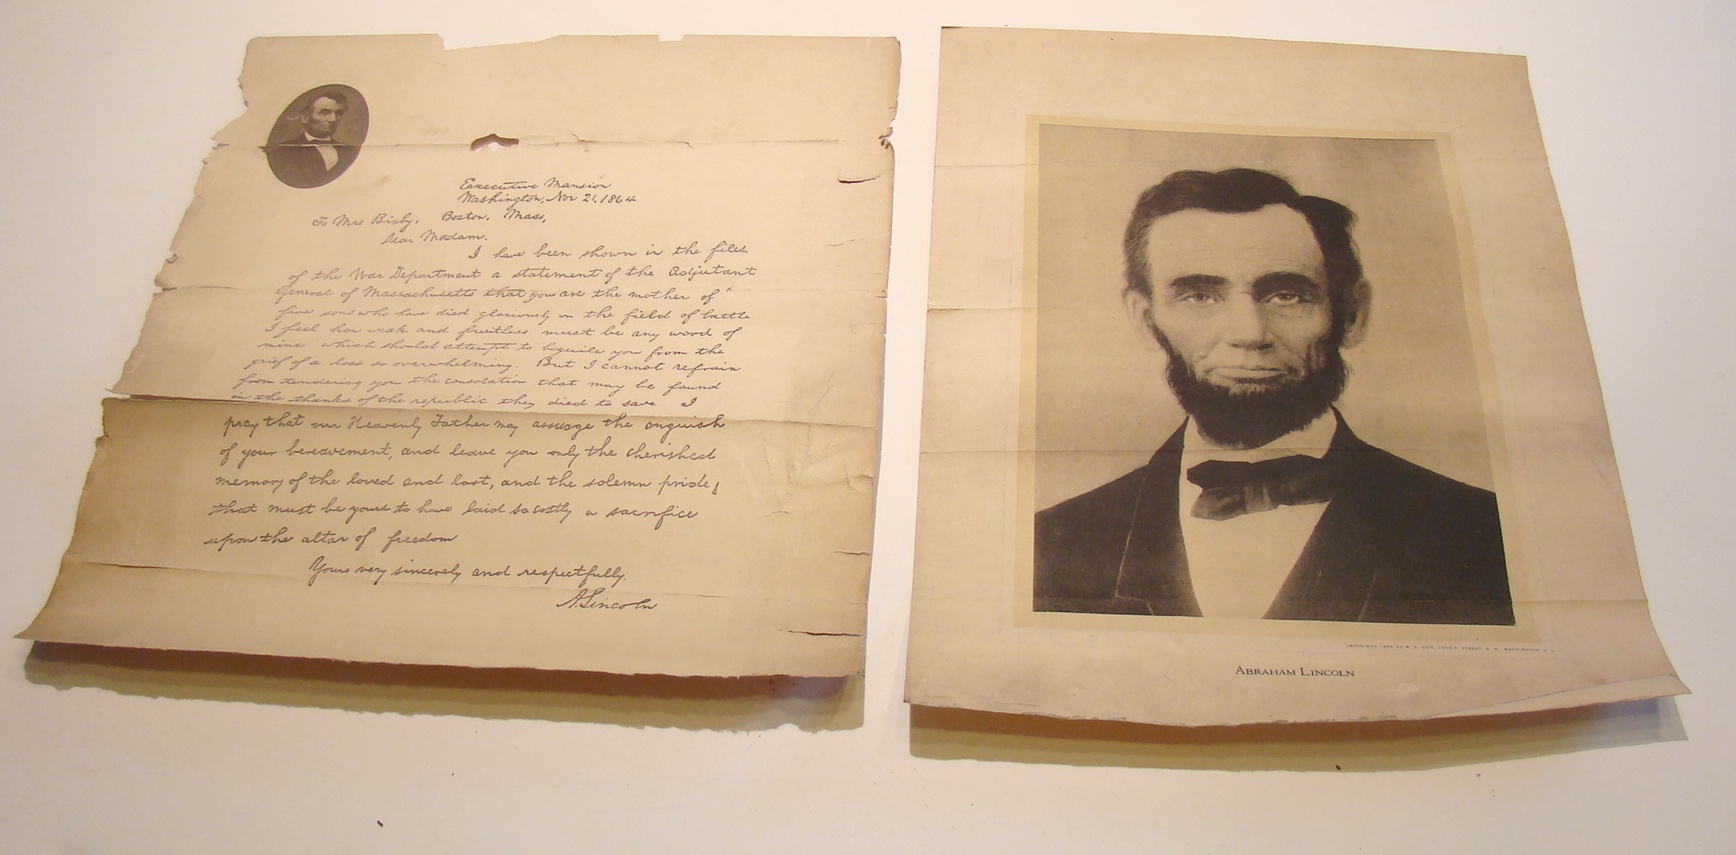 Executive Mansion
Washington, Nov 21, 1864
To Mrs Bixby, Boston, Mass,
Dear Madam.
I have been shown in the files
of the War Department a statement of the Adjutant
General of Massachusetts that you are the mother of
five sons who have died gloriously on the field of battle
I feel how weak and fruitless must be any word of
mine which should attempt to beguile you from the
grief of a loss so overwhelming. But I cannot refrain
from tendering you the consolation that may be found
in the thanks of the republic they died to save I
pray that our Heavenly Father may assuage the anguish
of your bereavement, and leave you only the cherished
memory of the loved and lost, and the solemn pride,
that must be yours to have laid so costly a sacrifice
upon the altar of freedom
Yours very sincerely and respectfully.
A. Lincoln
STREET, N. W. WASHINGTON, D. C.
ABRAHAM LINCOLN